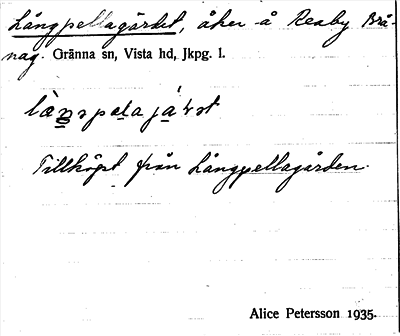 Långpellagärdet, åker å Reaby Brä-
nag. Gränna sn, Vista hd, Jkpg. l.
Tillköpt från Långpellagården.
Alice Petersson 1935.